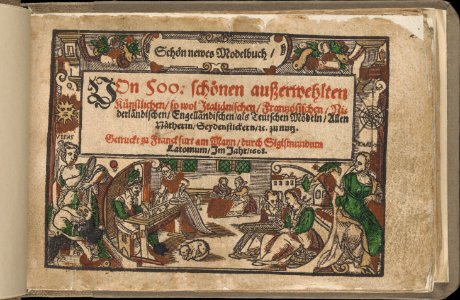 Schön newes Modelbuch/
Von 500. schönen außerwehlten
Künstlichen/ so wol Italiänischen/ Frantzösischen/ Ni-
derländischen/ Engelländischen/ als Teutschen Mödeln/ Allen
Nätherin/ Seydenstickern/ ꝛc. zu nutz.
Getruckt zu Franckfurt am Mayn/ durch Sigismundum
Latomum/ Im Jahr/ 1608.